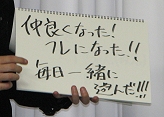 仲良くなった!
フレになった!!
毎日一緒に
遊んだ!!!